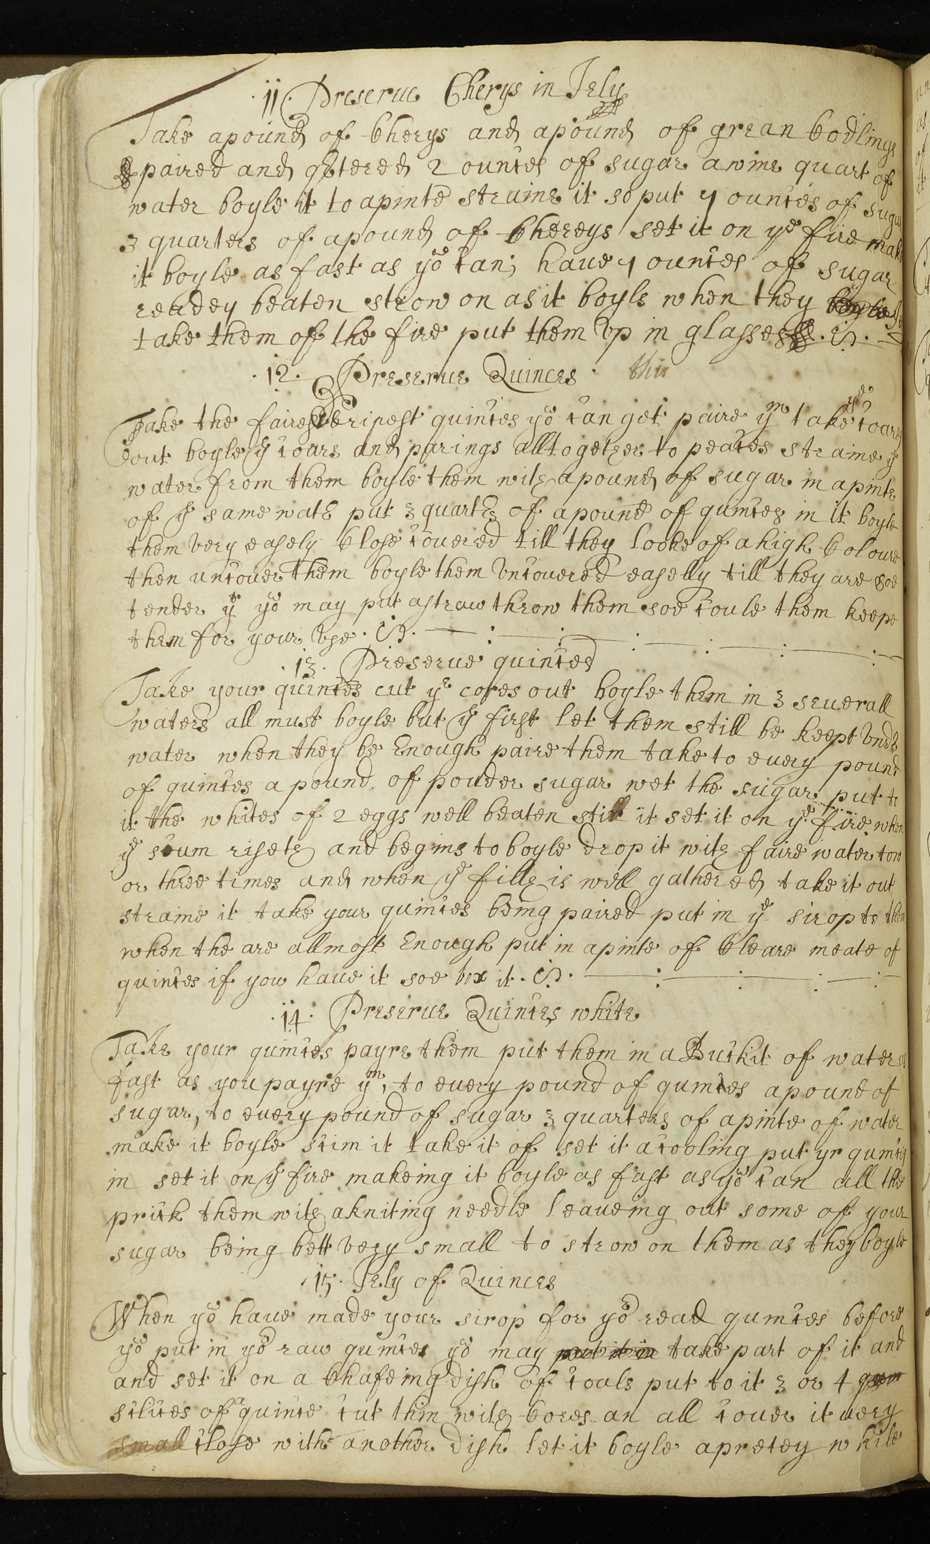 11 Preserue Cherys in Jely
Take a pound of Cherys and a pound of grean Codlings
paired and qrtered 2 ounces of sugar a wine quart of
water boyle it to a pinte straine it so put 4 ounces of sugar
3 quarters of a pound of Chereys set it on ye fire make
it boyle as fast as yo can; haue 4 ounces of sugar
readey beaten strow on as it boyls when they
take them of the fire put them Vp in glasses
12. Preserue Quinces
Take the fairest ripest quinces yo can get paire ym take ye coars
out boyle ye coars and parings alltogether to peaces straine ye
water from them boyle them with a pound of sugar in a pinte
of ye same watr put 3 quartrs of a pound of quinces in it boyle
them very easely Close couered till they looke of a high Coloure
then uncouer them boyle them Vncouered easelly till they are soe
tender yt yo may put a straw throw them soe coule them keepe
them for your Vse
13. Preserue quinces
Take your quinces cut ye cores out boyle them in 3 seuerall
waters all must boyle but ye first let them still be keept Vnder
water when they be Enough paire them take to euery pound
of quinces a pound of pouder sugar wet the sugar put to
it the whites of 2 eggs well beaten still it set it on ye fire when
ye scum riseth and begins to boyle drop it with faire water tow
or three times and when ye filth is well gathered take it out
straine it take your quinces being paired put in ye sirop to them
when the are allmost Enough put in a pinte of Cleare meate of
quinces if you haue it soe box it
14. Preserue Quinces white
Take your quinces payre them put them in a Buckit of water as
fast as you payre ym, to euery pound of quinces a pound of
sugar, to euery pound of sugar 3 quarters of a pinte of water
make it boyle scim it take it of set it a cooling put yr quinces
in set it on ye fire makeing it boyle as fast as yo can all the
prick them with a kniting needle leaueing out some of your
sugar being bett very small to strow on them as they boyle
15. Jely of Quinces
When yo haue made your sirop for yor read quinces before
yo put in yor raw quinces yo may put it in take part of it and
and set it on a Chafeing dish of coals put to it 3 or 4
slices of quince cut thin with cores an all couer it uery
small close with another dish let it boyle a pretey while